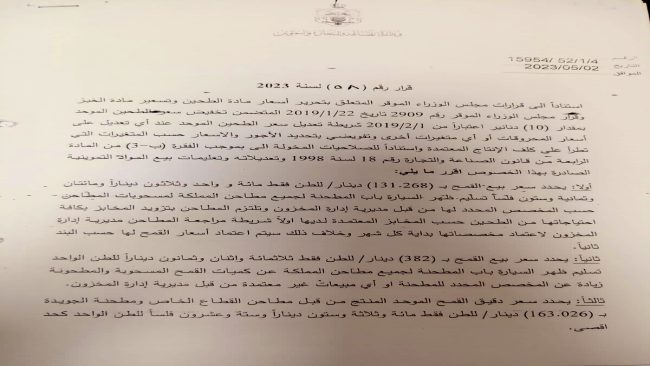 الرقم 15954/ 52/1/4
التاريخ 2023/05/02
الموافق
قرار رقم (٥٨) لسنة 2023
استناداً الى قرارات مجلس الوزراء الموقر المتعلق بتحرير أسعار مادة الطحين وتسعير مادة الخبز
وقرار مجلس الوزراء الموقر 2909 تاريخ 2019/1/22 المتضمن تخفيض سعر الطحين الموحد
بمقدار (10) دنانير اعتباراً من 2019/2/1 شريطة تعديل سعر الطحين الموحد عند أي تعديل على
أسعار المحروقات أو أي متغيرات أخرى وتفويضي بتحديد الأجور والاسعار حسب المتغيرات التي
تطرأ على كلف الإنتاج المعتمدة واستناداً للصلاحيات المخولة الى بموجب الفقرة (ب-3) من المادة
الرابعة من قانون الصناعة والتجارة رقم 18 لسنة 1998 وتعديلاته وتعليمات بيع المواد التموينية
الصادرة بهذا الخصوص اقرر ما يلي:
أولا: يحدد سعر بيع القمح بـ (131.268) دينار/ للطن فقط مائة و واحد وثلاثون ديناراً ومائتان
وثمانية وستون فلساً تسليم ظهر السيارة باب المطحنة لجميع مطاحن المملكة لمسحوبات المطاحن
حسب المخصص المحدد لها من قبل مديرية إدارة المخزون وتلتزم المطاحن بتزويد المخابز بكافة
احتياجاتها من الطحين حسب المخابز المعتمدة لديها اولاً شريطة مراجعة المطاحن مديرية إدارة
المخزون لاعتماد مخصصاتها بداية كل شهر وخلاف ذلك سيتم اعتماد أسعار القمح لها حسب البند
ثانياً.
ثانياً: يحدد سعر بيع القمح بـ (382) دينار/ للطن فقط ثلاثمائة وإثنان وثمانون ديناراً للطن الواحد
تسليم ظهر السيارة باب المطحنة لجميع مطاحن المملكة عن كميات القمح المسحوبة والمطحونة
زيادة عن المخصص المحدد للمطحنة او أي مبيعات غير معتمدة من قبل مديرية إدارة المخزون.
ثالثاً: يحدد سعر بيع دقيق القمح الموحد المنتج من قبل مطاحن القطاع الخاص ومطحنة الجويدة
بـ (163.026) دينار/ للطن فقط مائة وثلاثة وستون ديناراً وستة وعشرون فلساً للطن الواحد كحد
اقصى.